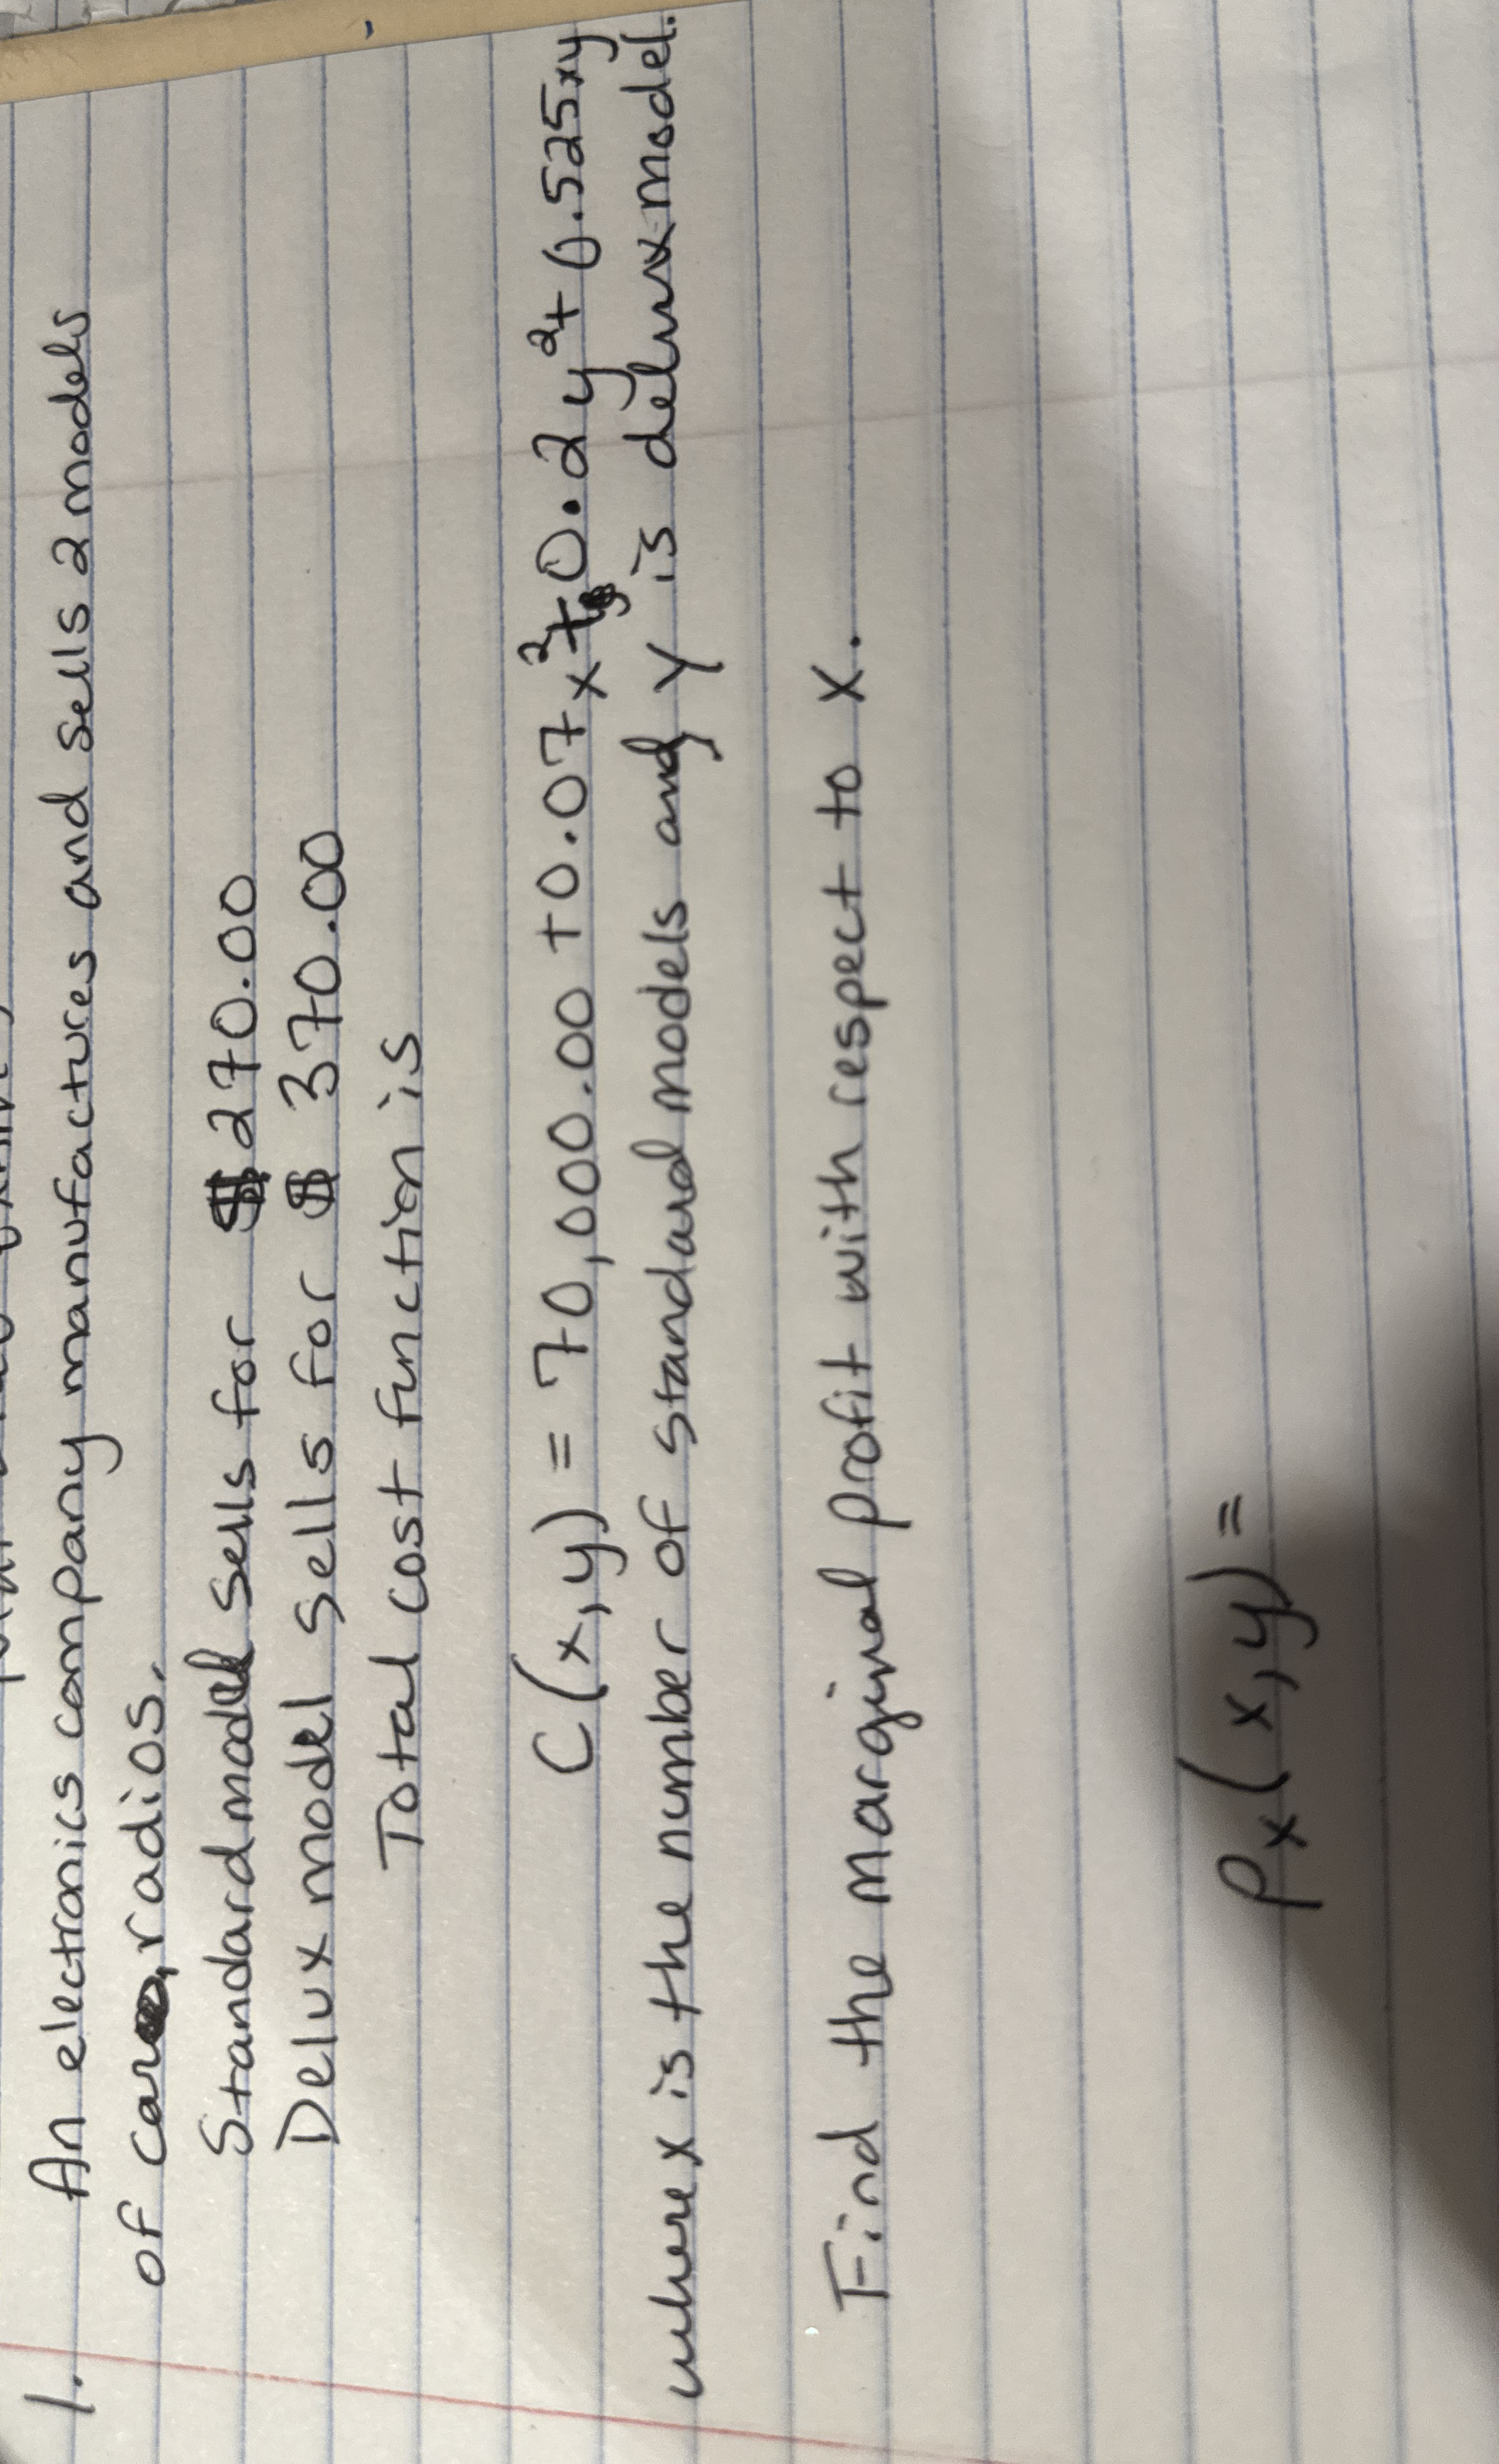 1. An electronics company manufactures and sells 2 models
of car radios.
Standard model sells for $270.00
Delux model sells for $ 370.00
Total cost function is
C(x,y) = 70,000.00 +0.07x²+0.2y²+0.525xy
where x is the number of standard models and y is delux model.
Find the marginal profit with respect to x.
Pₓ(x,y) =